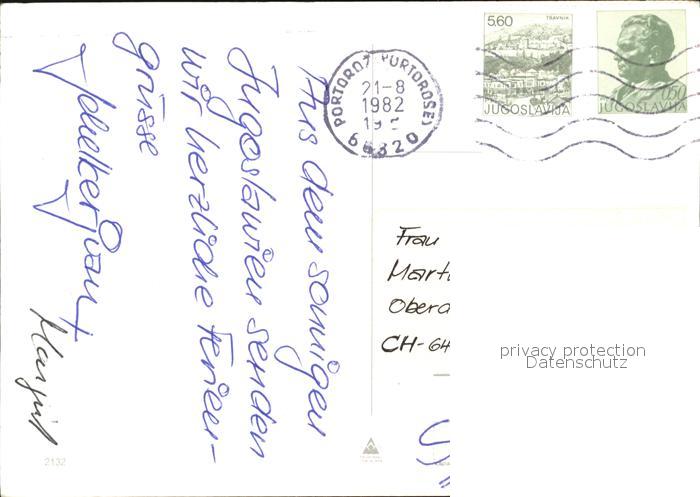 Aus dem sonnigen
Jugoslawien senden
wir herzliche Ferien-
grüsse
Margrit
PORTOROŽ (PORTOROSE)
21-8
1982
66320
5.60
TRAVNIK
JUGOSLAVIJA
0.50
JUGOSLAVIJA
Frau
Mart
Obera
CH-64
privacy protection
Datenschutz
2132